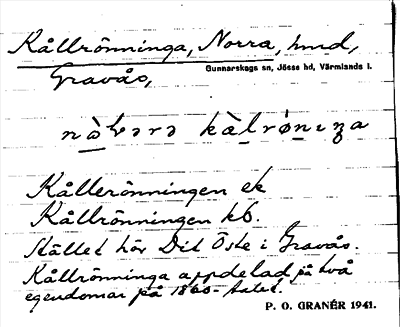 Kållrönninga, Norra, hmd,
Gunnarskogs sn, Jösse hd, Värmlands l.
Gravås,
Kållerönningen ek
Kållrönningen kb.
Stället hör Dit Öste i Gravås.
Kållrönninga appdelad på två
egendomar på 1860-talet.
P. O. GRANÉR 1941.